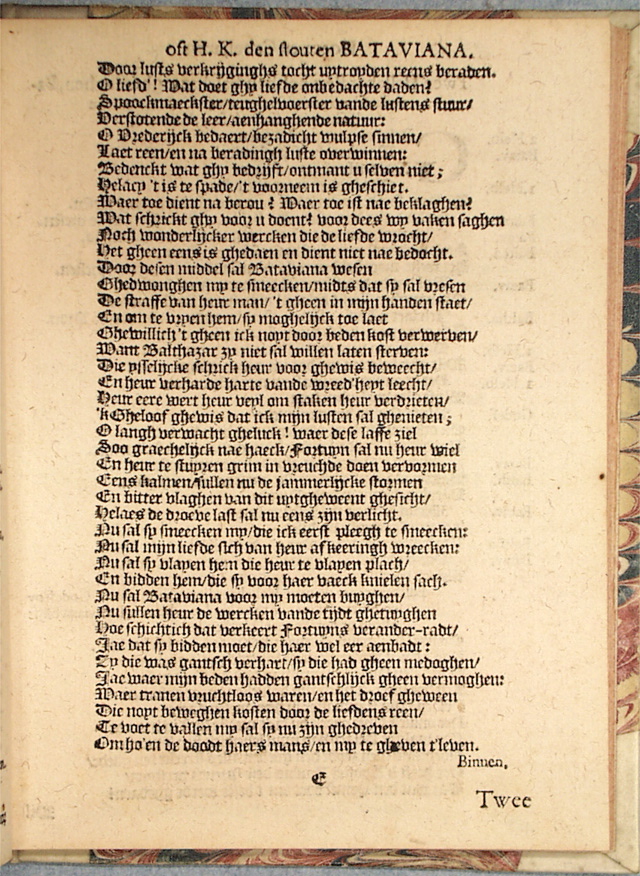 oft H. K. den stouten BATAVIANA.
Door lusts verkrijginghs tocht uytroyden reens beraden.
O liefd'! Wat doet ghy liefde onbedachte daden?
Spoockmaeckster/teughelvoerster vande lustens stuur/
Verstotende de leer/aenhanghende natuur:
O Vrederijck bedaert/bezadicht wulpse sinnen/
Laet reen/en na beradingh luste overwinnen:
Bedenckt wat ghy bedrijft/ontmant u selven niet;
Helacy 't is te spade/'t voorneem is gheschiet.
Waer toe dient na berou? Waer toe ist nae beklaghen?
Wat schrickt ghy voor u doent? voor dees wy vaken saghen
Noch wonderlijcker wercken die de liefde wrocht/
Het gheen eens is ghedaen en dient niet nae bedocht.
Door desen middel sal Bataviana wesen
Ghedwonghen my te smeecken/midts dat sy sal vresen
De straffe van heur man/'t gheen in mijn handen staet/
En om te vryen hem/sy moghelijck toe laet
Ghewillich 't gheen ick noyt door beden kost verwerven/
Want Balthazar zy niet sal willen laten sterven:
Die yselijcke schrick heur voor ghewis beweecht/
En heur verharde harte vande wreed'heyt leecht/
Heur eere wert heur veyl om staken heur verdrieten/
'k Gheloof ghewis dat ick mijn lusten sal ghenieten;
O langh verwacht gheluck! waer dese laffe ziel
Soo graechelijck nae haeck/Fortuyn sal nu heur wiel
En heur te stuyren grim in vreuchde doen vervormen
Eens kalmen/sullen nu de jammerlijcke stormen
En bitter vlaghen van dit uytgheweent ghesicht/
Helaes de droeve last sal nu eens zijn verlicht.
Nu sal sy smeecken my/die ick eerst pleegh te smeecken:
Nu sal mijn liefde sich van heur afkeeringh wreecken:
Nu sal sy vlayen hem die heur te vlayen plach/
En bidden hem/die sy voor haer vaeck knielen sach.
Nu sal Bataviana voor my moeten buyghen/
Nu sullen heur de wercken vande tijdt ghetuyghen
Hoe schichtich dat verkeert Fortuyns verander-radt/
Jae dat sy bidden moet/die haer wel eer aenbadt:
Sy die was gantsch verhart/sy die had gheen medoghen/
Jae waer mijn beden hadden gantschlijck gheen vermoghen:
Waer tranen vruchtloos waren/en het droef gheween
Die noyt beweghen kosten door de liefdens reen/
Te voet te vallen my sal sy nu zijn ghedreven
Om ho'en de doodt haers mans/en my te gheven t'leven.
Binnen.
E
Twee